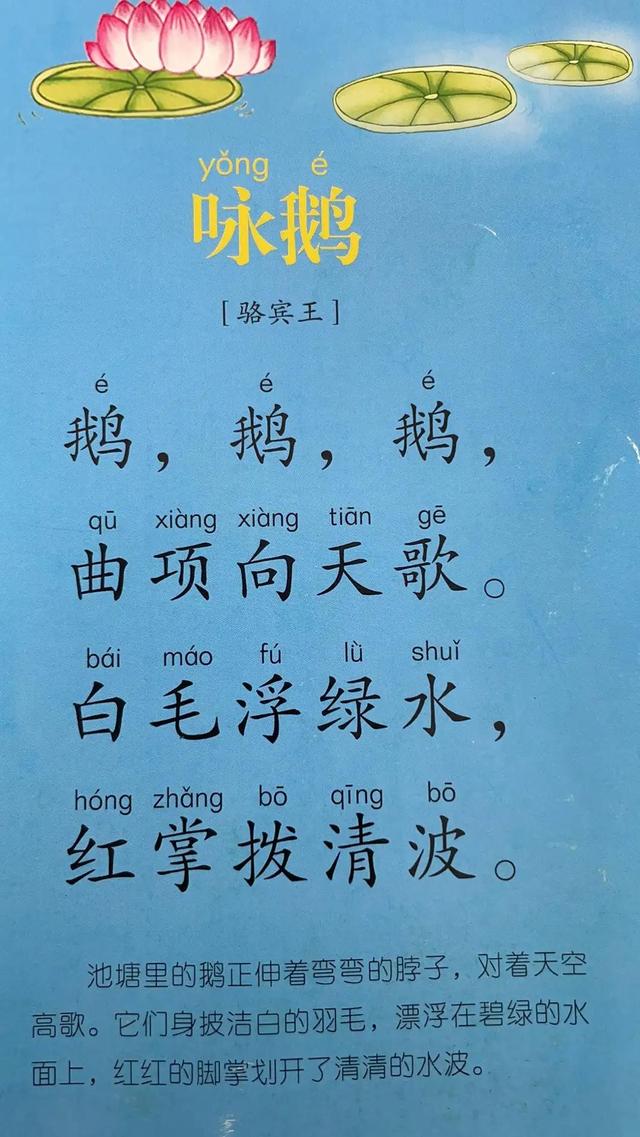 yǒng é
咏鹅
[骆宾王]
é é é
鹅，鹅，鹅，
qū xiàng xiàng tiān gē
曲项向天歌。
bái máo fú lǜ shuǐ
白毛浮绿水，
hóng zhǎng bō qīng bō
红掌拨清波。
池塘里的鹅正伸着弯弯的脖子，对着天空
高歌。它们身披洁白的羽毛，漂浮在碧绿的水
面上，红红的脚掌划开了清清的水波。